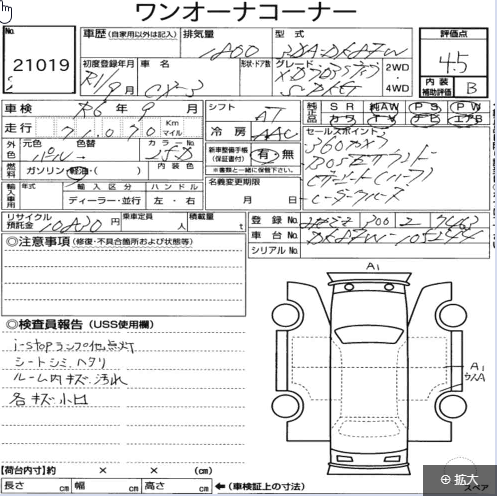 ワンオーナーコーナー
No.
21019
車歴 (自家用以外は記入)
排気量
1800
型式
3DA-DK8FW
評価点
4.5
内装
補助評価
B
初度登録年月
R1/9月
車名
CX-3
形状・ドア数
グレード
XD
S PKG
2WD
4WD
車検
R6年9月
走行
71,070
Km
マイル
シフト
AT
冷房
AAC
純正品
SR
純AW
PS
PW
外色
元色
パール
色替
カラーNo.
25D
燃料
ガソリン・軽油・( )
内装色
新車整備手帳
(保証書付)
有・無
※書類と一緒に保管下さい。
セールスポイント
360°カメラ
BOSEサウンド
レーダークルーズ
輸入車用
年式
輸入区分
ハンドル
ディーラー・並行
左・右
名義変更期限
月 日
リサイクル
預託金
円
乗車定員
人
積載量
t
登録No.
300
車台No.
DK8FW-105244
シリアルNo.
◎注意事項(修復・不具合箇所および状態等)
◎検査員報告(USS使用欄)
i-stopランプ他点灯
シートシミ、ヘタリ
ルーム内キズ汚れ
各キズ小凹
A1
A1
【荷台内寸】約 × × (cm)
長さ cm 幅 cm 高さ cm ←(車検証上の寸法)
スペア
拡大